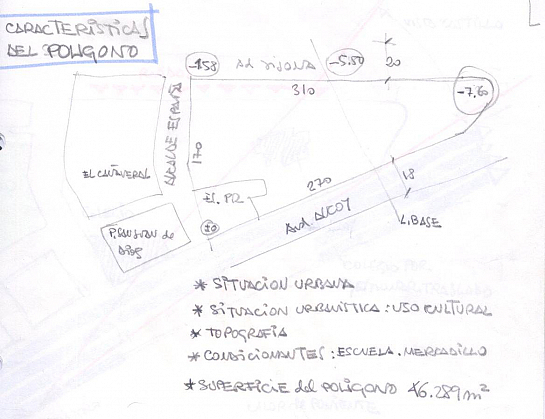 CARACTERÍSTICAS
DEL POLIGONO
-4.58
-5.50
20
310
-7.60
ALCALDE ESPAÑA
170
EL CAÑAVERAL
270
18
ES. PR.
±0
Avd. ALCOY
L. BASE
* SITUACION URBANA
* SITUACION URBANISTICA : USO CULTURAL
* TOPOGRAFIA
* CONDICIONANTES : ESCUELA . MERCADILLO
* SUPERFICIE del POLIGONO 46.289 m²